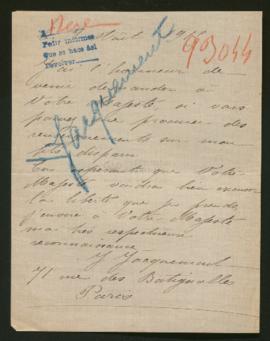 Pedir informes
que se hace así
Devolver
93044
Jacquemont
J'ai l'honneur de
venir demander à
Votre Majesté si vous
pouvez me procurer des
renseignements sur mon
fils disparu
En espérant que Votre
Majesté voudra bien excuser
la liberté que je prends
j'envoie à Votre Majesté
ma très respectueuse
reconnaissance
J Jacquemont
71 rue des Batignolles
Paris